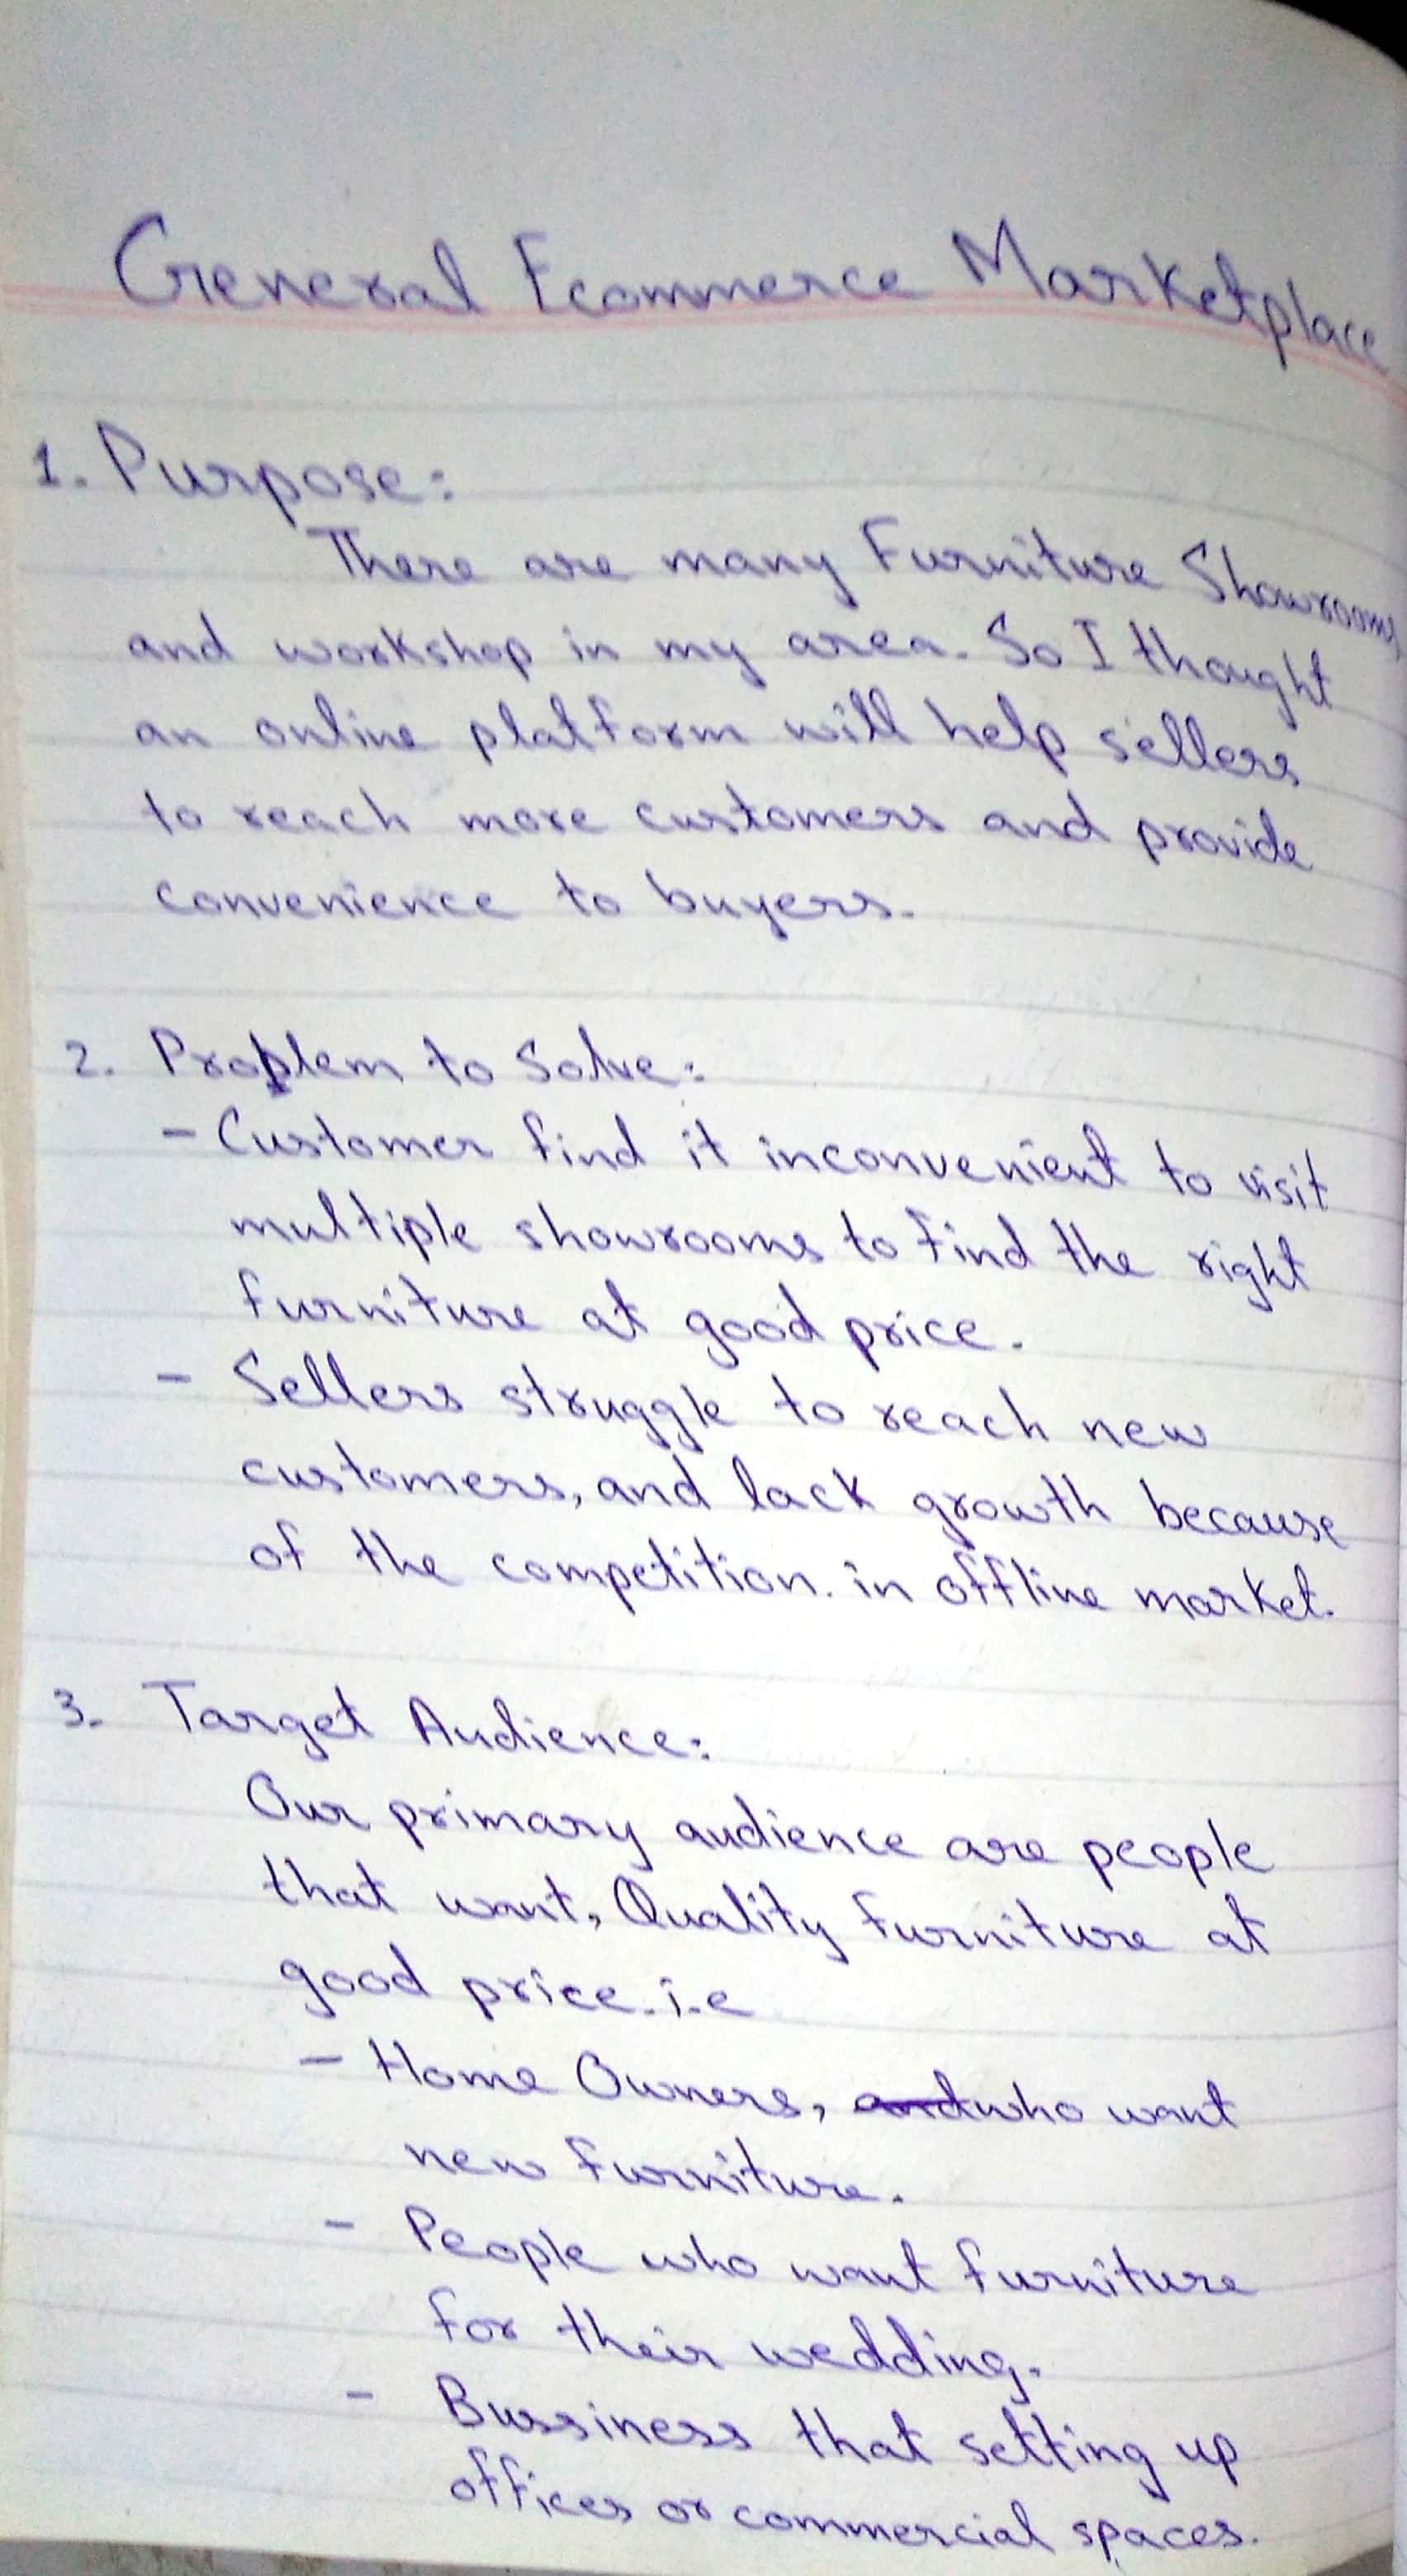 General Ecommerce Marketplace
1. Purpose:
There are many Furniture Showrooms,
and workshop in my area. So I thought
an online platform will help sellers
to reach more customers and provide
convenience to buyers.
2. Problem to Solve:
- Customer find it inconvenient to visit
multiple showrooms to find the right
furniture at good price.
- Sellers struggle to reach new
customers, and lack growth because
of the competition. in offline market.
3. Target Audience:
Our primary audience are people
that want, Quality furniture at
good price. i.e
- Home Owners, and who want
new furniture.
- People who want furniture
for their wedding.
- Bussiness that setting up
offices or commercial spaces.